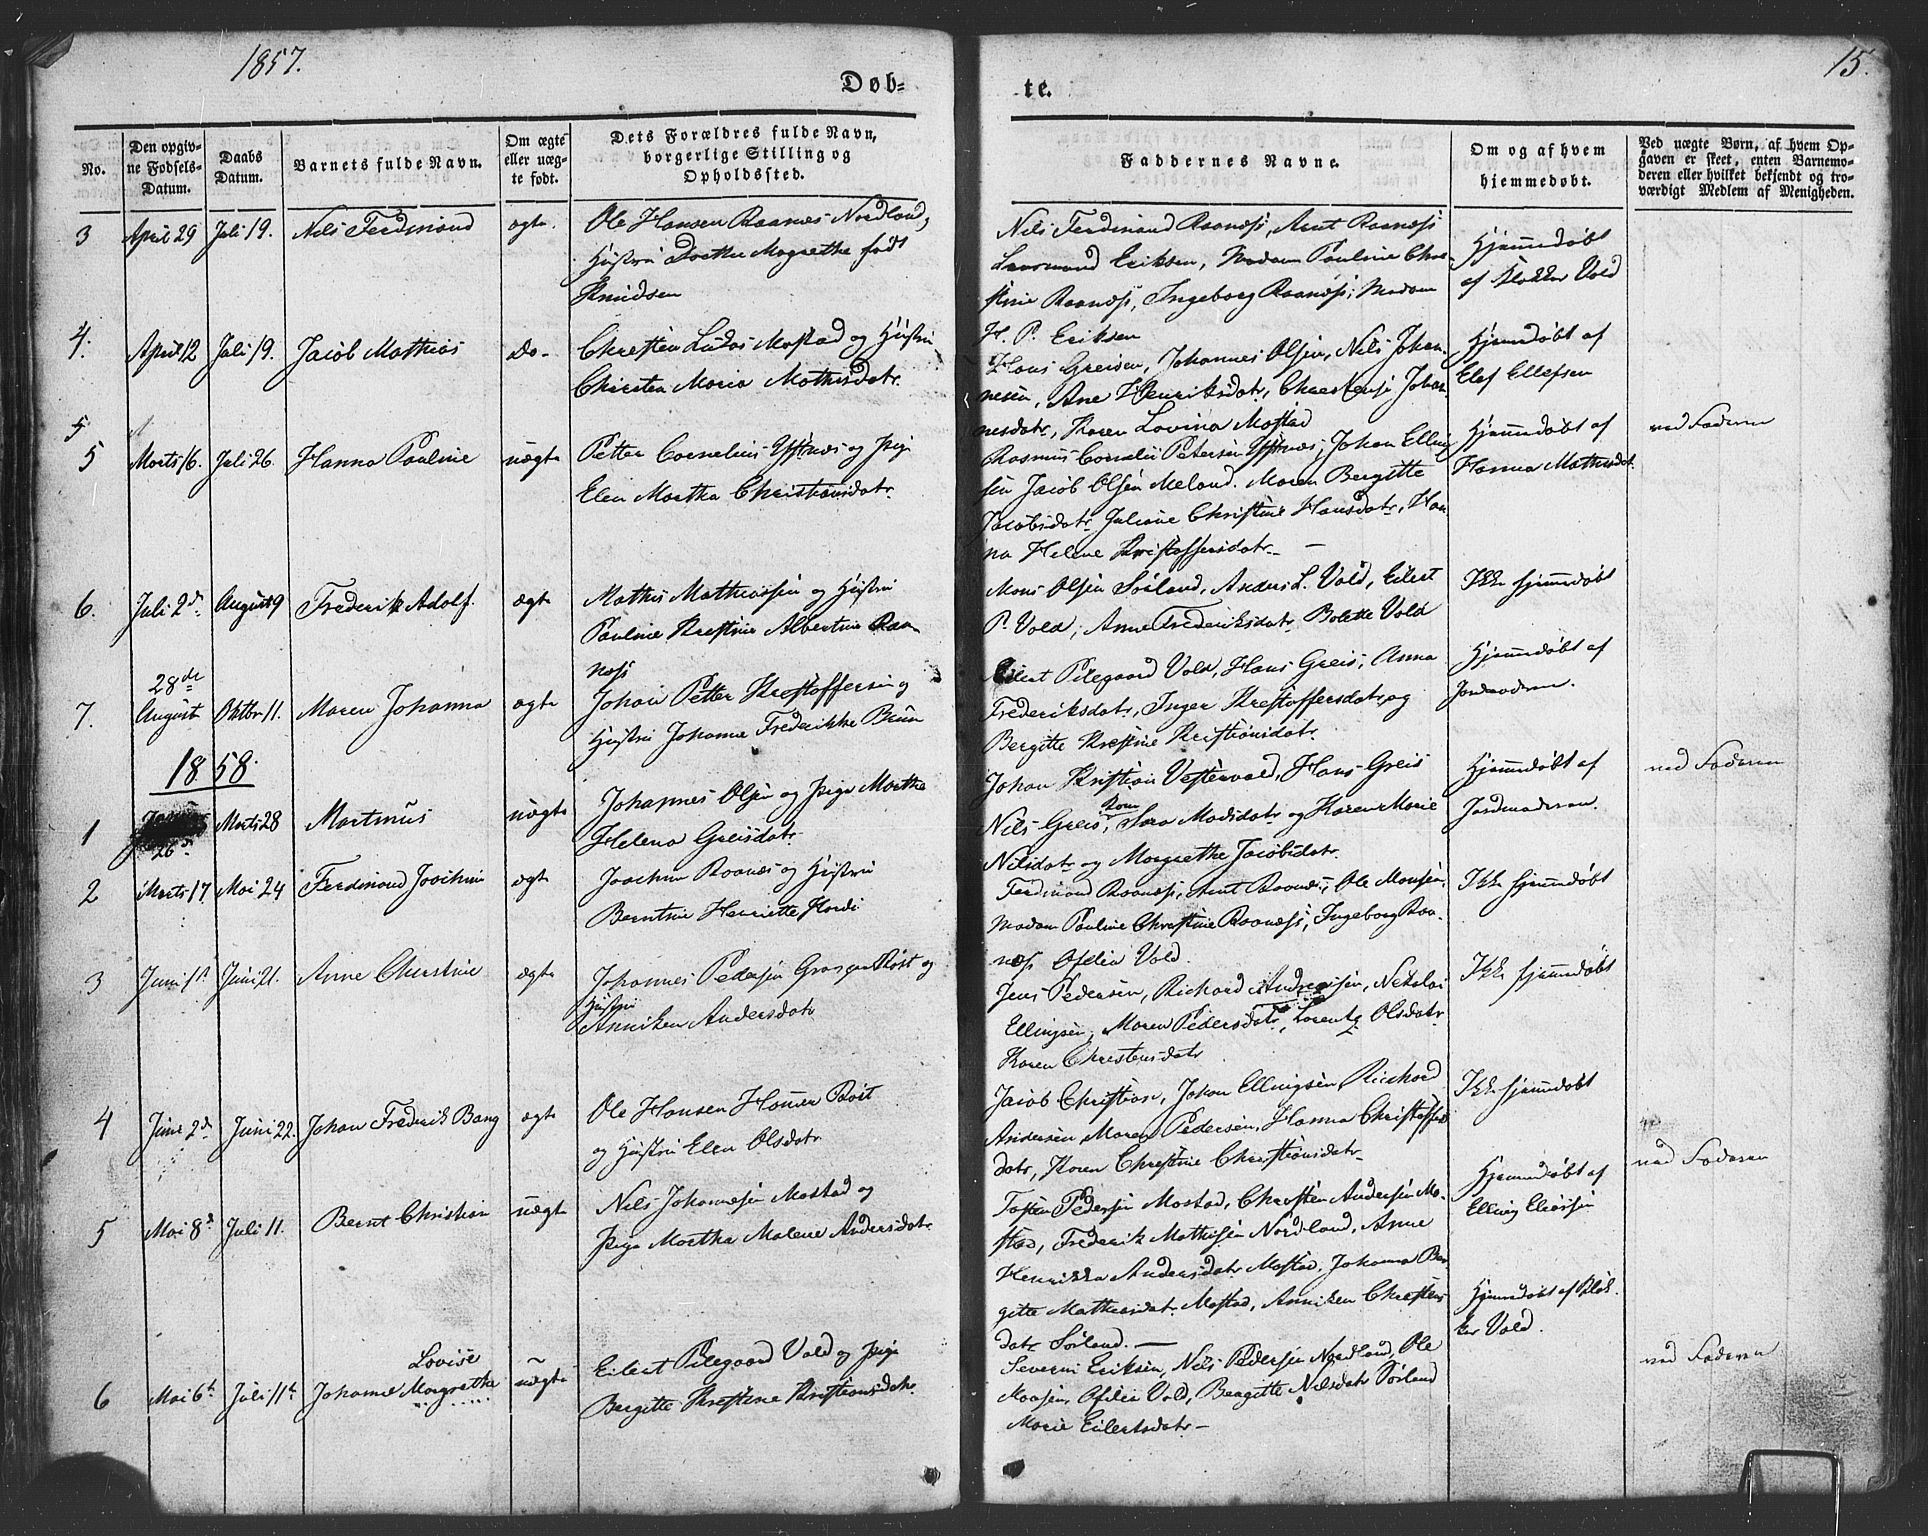 1857.
15.
Døb=
te.
No.
Den opgiv-
ne Fødsels-
Datum.
Daabs
Datum.
Barnets fulde Navn.
Om ægte
eller uæg-
te født.
Dets Forældres fulde Navn,
borgerlige Stilling og
Opholdssted.
Faddernes Navne.
Om og af hvem
hjemmedøbt.
Ved uægte Børn, af hvem Op-
gaven er skeet, enten Barnemo-
deren eller hvilket bekjendt og tro-
værdigt Medlem af Menigheden.
3 April 29 Juli 19. Nils Ferdinand ægte. Ole Hansen Raanæs Nordland,
Hustru Dorthe Magrethe født
Knudsen
Nils Ferdinand Raanæss, Arnt Raanæss
Eriksen, Madam Pauline Chre-
stine Raanæss, Ingeborg Raanæss, Madam
H. P. Eriksen
Hjemmedøbt
af Klokker Vold
4. April 12 Juli 19. Jacob Mathias do- Chresten Lucas Mostad og Hustru
Chirsten Maria Mathisdatr.
Hans Greisen, Johannes Olsen, Nils Johan-
nesen, Ane Henriksdatr, Johan-
nesdatr, Karen Lovina Mostad
Hjemmedøbt af
Elef Ellefsen
5
5 Marts 16. Juli 26. Hanna Pauline uægte Petter Cornelius Yttnæs og Pige
Elen Martha Christiansdatr.
Rasmus Cornelii Petersen Yttnæs, Johan Elling-
sen Jacob Olsen Meland. Maren Bergitte
Jacobsdatr Juliane Christine Hansdatr, Han-
na Helene Kristoffersdatr. —
Hjemmedøbt af
Hanna Mathisdatr.
ved Faderen
6. Juli 2d August 9 Frederik Adolf. ægte Mathis Mathiassen og Hustru
Pauline Krestine Albertine Raa-
næss
Mons Olsen Sörland, Anders L. Vold, Eilert
P. Vold, Anne Frederiksdatr. Bolette Vold
Ikke hjemmedøbt
7. 28de
August Oktbr 11. Maren Johanna ægte Johan Petter Krestoffersen og
Hustru Johanne Frederikke Bruun
Eilert Pilegaard Vold, Hans Greis, Anna
Frederiksdatr, Inger Krestoffersdatr. og
Bergitte Krestine Kristiansdatr.
Hjemmedøbt af
Jordmoderen.
1858.
1 26d Marts 28 Martinus uægte Johannes Olsen og Pige Martha
Helena Greisdatr.
Johan Kristian Vestervold, Hans Greis
Nils Greis, Sara Madsdatr og Karen Marie
Nilsdatr og Margrethe Jacobsdatr.
Hjemmedøbt af
Jordmoderen.
ved Faderen
2 Marts 17 Mai 24 Ferdinand Joachim ægte Joachim Raanæs og Hustru
Berntine Henriette Hordi
Ferdinand Raanæss, Arnt Raanæs, Ole Monsen,
Madam Pauline Chrestine Raanæss, Ingeborg Raa-
næss Ofelia Vold.
Ikke hjemmedøbt
3 Juni 1st Juni 21. Anne Cherstine ægte Johannes Pedersen Røst og
Hustru
Anniken Andersdatr
Jens Pedersen, Richard Andreasen, Nikolai
Ellingsen, Maren Pedersdatr, Lorentz Olsdatr
Karen Chrestensdatr
Ikke hjemmedøbt
4 Juni 2d Juni 22. Johan Frederik Bang ægte Ole Hansen Hamer Røst
og Hustru Elen Olsdatr
Jacob Christian, Johan Ellingsen, Richard
Andersen Maren Pedersen, Hanna Christoffers
datr, Karen Chrestine Chrestiansdatr.
Ikke hjemmedøbt
5 Mai 8d Juli 11. Bernt Christian uægte Nils Johannesen Mostad og
Pige Martha Malene Andersdatr.
Tosten Pedersen Mostad, Chresten Andersen Mo-
stad, Frederik Mathisen Nordland, Anne
Henrikka Andersdatr Mostad, Johanna Ber-
gitte Mathiasdatr Mostad, Anniken Chrestens
datr Sörland. —
Hjemmedøbt af
Elling Eliasen
ved Faderen
6 Mai 6te Juli 11te Lovise
Johanne Magrethe uægte Eilert Pilegaard Vold og Pige
Bergitte Krestine Kristiansdatr.
Severin Eriksen, Nils Pedersen Nordland, Ole
Monsen, Ofelia Vold, Bergitte Nilsdatr Sörland
Marie Eilertsdatr —
Hjemmedøbt af Klok-
ker Vold.
ved Faderen